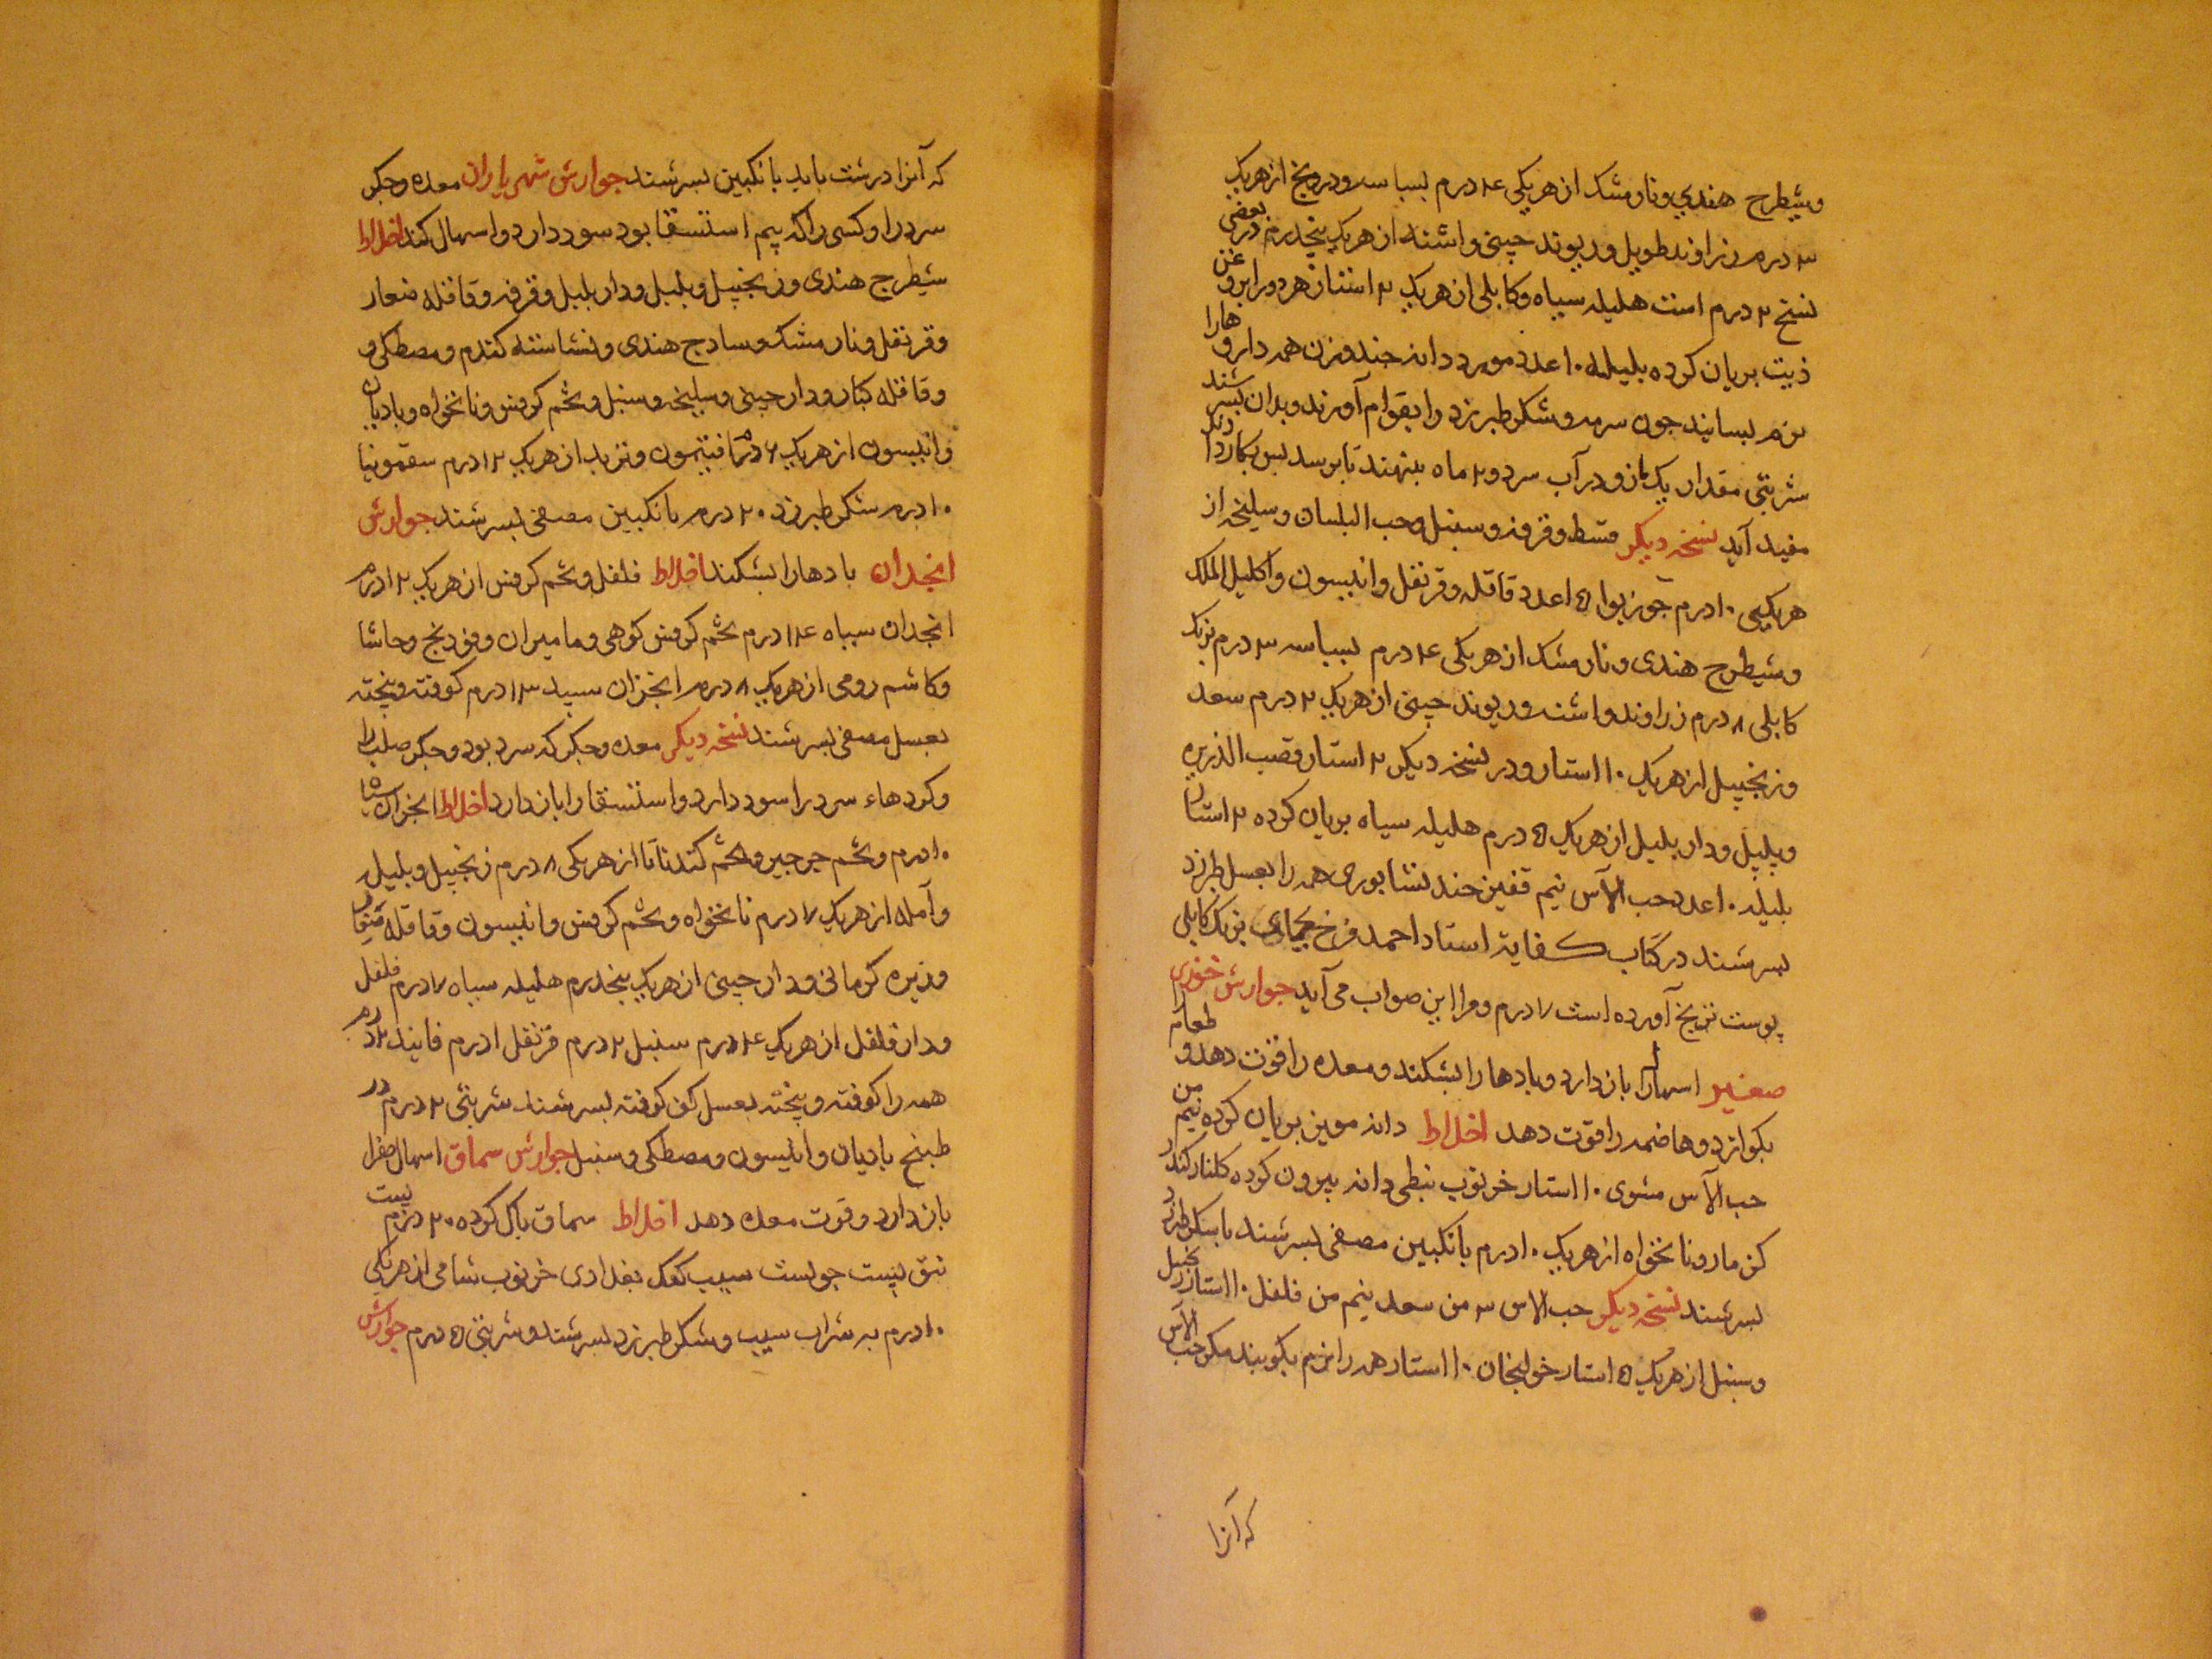 وشیطرج هندي ونارمشک از هریکی ۴ درم بسباسه ودرونج از هریک
۳ درم زراوند طویل وریوند چینی واشنه از هریک پنجدرم در بعضی
نسخ ۲ درم است هلیله سیاه وکابلی از هریک ۲ استار هر دو را بروغن
زیت بریان کرده بلیله ۱۰ عدد مورد دانه چند وزن همه داروها را
نرم بسایند جون سرمه وشکر طبرزد را بقوام آورند وبدان بسرشند
شربتی مقدار یک در آب سرد و ۲ ماه بنهند تا برسد پس بکار دارند
مفید آید نسخه دیگر قسط وقرفه وسنبل وحب البلسان وسلیخه از
هریکی ۱۰ درم جوزبوا ۵ عدد قاقله وقرنفل وانیسون واکلیل الملک
وشیطرج هندی ونارمشک از هریکی ۴ درم بسباسه ۳ درم برنک
کابلی ۸ درم زراوند واشنه وریوند چینی از هریک ۲ درم سعد
وزنجبیل از هریک ۱۰ استار ودر نسخه دیکر ۲ استار وقصب الذریره
وپلپل ودار بلیل از هریک ۵ درم هلیله سیاه بریان کرده ۲ استار
بلیله ۱۰ عدد حب الآس نیم قفیز جند نشابوری همه را بعسل طبرزد
بسرشند در کتاب کفایة استاد احمد فرخ برنک کابلی
پوست ترنج آورده است ۷ درم ومرا این صواب می آید جوارش خوزی
صغیر اسهال را باز دارد وبادها را بشکند ومعده را قوت دهد وطعام
بکوارد وهاضمه را قوت دهد اخلاط دانه مویز بریان کرده نیم من
حب الآس مشوی ۱۰ استار خرنوب نبطی دانه بیرون کرده کلنار کندر
کزمازو نانخواه از هریک ۱۰ درم بانکبین مصفی بسرشند با شکر طبرزد
بسرشند نسخه دیکر حب الاس ۳ من سعد نیم من فلفل ۱۰ استار زنجبیل
وسنبل از هریک ۵ استار خولنجان ۱۰ استار همه را نرم بکوبند مکر حب الآس
که آنرا
که آنرا درشت باید بانکبین بسرشند جوارش شهریاران معده وجکر
سرد را وکسی را که بیم استسقا بود سود دارد واسهال کند اخلاط
شیطرج هندی وزنجبیل وبلبل ودار بلبل وقرفه وقاقله صغار
وقرنفل ونارمشک وسادج هندی ونشاسته کندم ومصطکی و
وقاقله کبار ودارجینی وسلیخه وسنبل وتخم کرفس ونانخواه وبادیان
وانیسون از هریک ۶ درم افتیمون وتربد از هریک ۱۲ درم سقمونیا
۱۰ درم شکر طبرزد ۲۰ درم بانکبین مصفی بسرشند جوارش
انجدان بادها را بشکند اخلاط فلفل وتخم کرفس از هریک ۱۲ درم
انجدان سیاه ۱۴ درم تخم کرفس کوهی ومامیران وفودنج وحاشا
وکاشم رومی از هریک ۸ درم انجدان سپید ۱۳ درم کوفته وبیخته
بعسل مصفی بسرشند نسخه دیکر معده وجکر که سرد بود وجکر صلب را
وکرده‌اء سرد را سود دارد واستسقا را باز دارد اخلاط انجدان سیاه
۱۰ درم وتخم جرجیر وتخم کندنا از هریکی ۸ درم زنجبیل وبلیله
وآمله از هریک ۷ درم نانخواه وتخم کرفس وانیسون وقاقله
وزیره کرمانی ودارچینی از هریک پنجدرم هلیله سیاه ۷ درم فلفل
ودارفلفل از هریک ۴ درم سنبل ۲ درم قرنفل ۱ درم فانیذ درم
همه را کوفته وبیخته بعسل کف کرفته بسرشند شربتی ۲ درم در
طبیخ بادیان وانیسون ومصطکی وسنبل جوارش سماق اسهال صفرا
باز دارد وقوت معده دهد اخلاط سماق پاک کرده ۲۰ درم پست
نبق پست جو پست سیب کعک بغدادی خرنوب شامی از هریکی
۱۰ درم به شراب سیب وشکر طبرزد بسرشند وشربتی ۵ درم جوارش